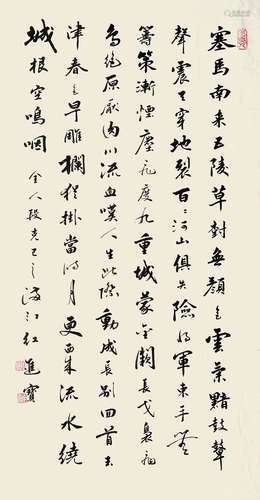 塞馬南来五陵草樹無顏色雲氣黯鼓鼙
聲震天穿地裂百二河山俱失險將軍束手無
籌策漸煙塵飛度九重城蒙金闕長戈裊飛
鳥絶原厭肉川流血嘆人生此際動成長別回首玉
津春色早雕欄猶掛當時月更西来流水繞
城根空鳴咽 金人段克己之滿江紅 進寶